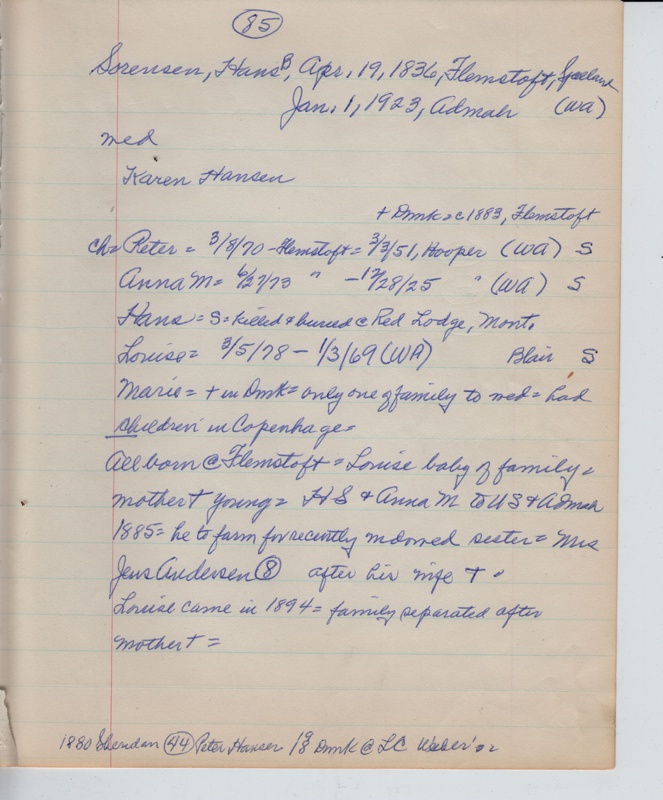 85
Sorensen, Hans B, Apr. 19, 1836, Flemstoft, Sjaeland
Jan. 1, 1923, Admah (WA)
med
Karen Hansen
+ Dmk = c 1883, Flemstoft
ch = Peter = 3/8/70 - Flemstoft = 3/3/51, Hooper (WA) S
Anna M = 6/27/73 " - 12/28/25 " (WA) S
Hans = S = killed & buried @ Red Lodge, Mont.
Louise = 3/5/78 - 1/3/69 (WA) Blair S
Marie = + in Dmk = only one of family to med = had
children in Copenhage =
All born @ Flemstoft = Louise baby of family =
mother + young = HS & Anna M to US & Admah
1885 = he to farm for recently widowed sister = Mrs
Jens Andersen 8 after his wife +
Louise came in 1894 = family separated after
mother + =
1880 Sheridan 44 Peter Hansen 18 Dmk @ LC Weber